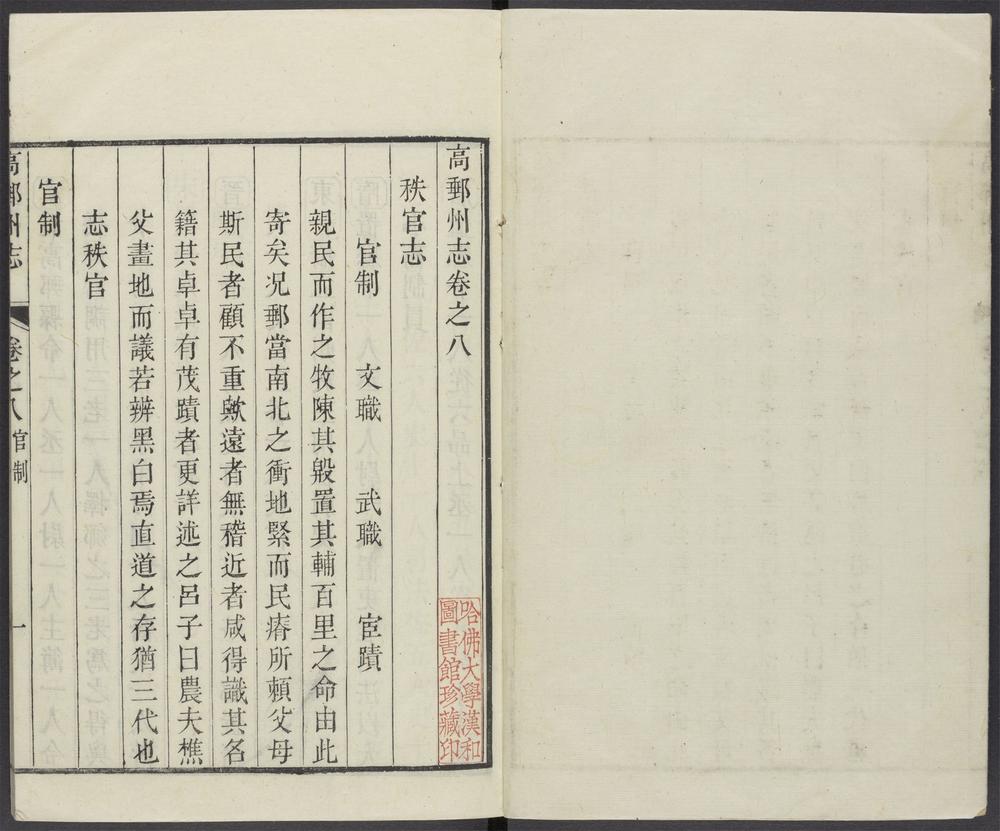 高郵州志卷之八
秩官志
官制 文職 武職 宦蹟
親民而作之牧陳其殷置其輔百里之命由此
寄矣况郵當南北之衝地緊而民瘠所頼父母
斯民者顧不重歟遠者無稽近者咸得識其名
籍其卓卓有茂蹟者更詳述之呂子曰農夫樵
父畫地而議若辨黑白焉直道之存猶三代也
志秩官
官制
高郵州志 卷之八 官制 一
哈佛大學漢和
圖書館珍藏印